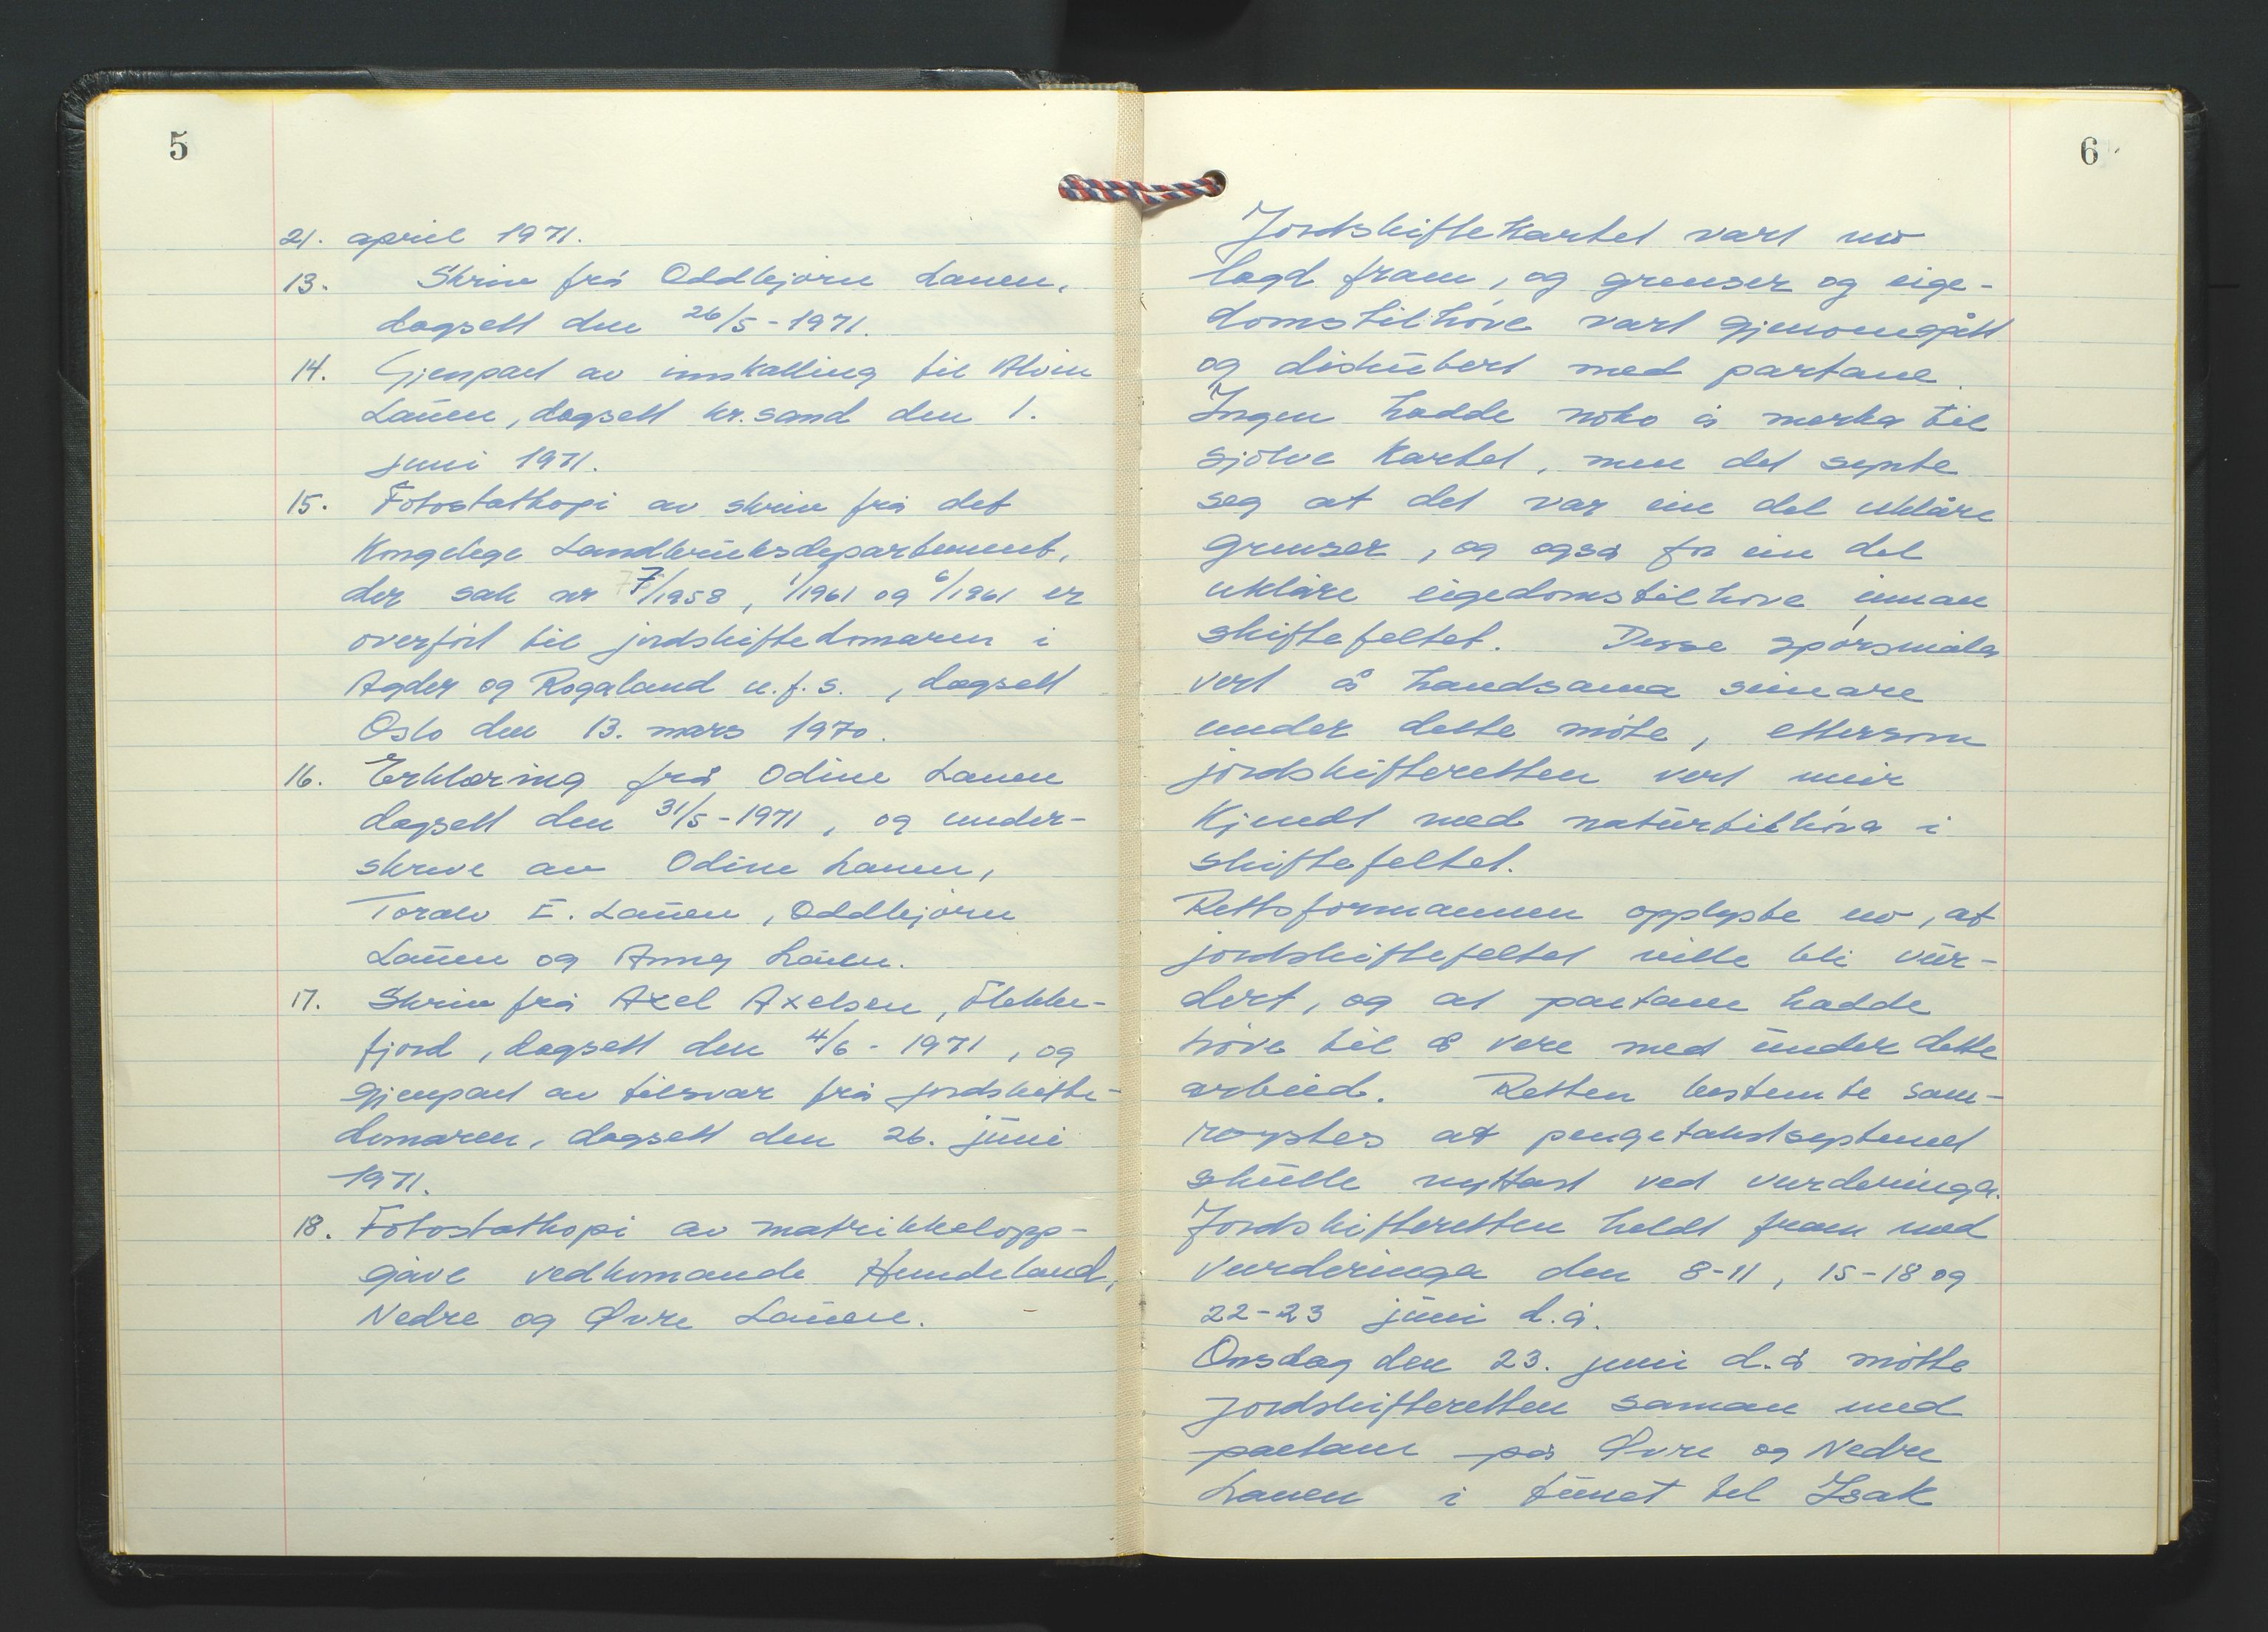 5
21. april 1971.
13. Skriv frå Oddbjørn Lauen,
dagsett den 26/5-1971.
14. Gjenpart av innkalling til Alvin
Lauen, dagsett kr.sand den 1.
juni 1971.
15. Fotostatkopi av skriv frå det
Kongelege Landbruksdepartement,
der sak nr 7/1958, 1/1961 og 6/1961 er
overført til jordskiftedomaren i
Agder og Rogaland u.f.s., dagsett
Oslo den 13. mars 1970.
16. Erklæring frå Odine Lauen
dagsett den 31/5-1971, og under-
skrive av Odine Lauen,
Toralv E. Lauen, Oddbjørn
Lauen og Anny Lauen.
17. Skriv frå Axel Axelsen, Flekke-
fjord, dagsett den 4/6-1971, og
gjenpart av tilsvar frå jordskifte-
domaren, dagsett den 26. juni
1971.
18. Fotostatkopi av matrikkelopp-
gåve vedkomande Hundeland,
Nedre og Øvre Lauen.
6
Jordskiftekartet vart no
lagd fram, og grenser og eige-
domstilhøve vart gjenomgått
og diskutert med partane.
Ingen hadde noko å merka til
sjølve kartet, men det synte
seg at det var ein del uklåre
grenser, og også for ein del
uklåre eigedomstilhøve innan
skiftefeltet. Desse spørsmåla
vert å handsama seinare
under dette møte, ettersom
jordskifteretten vert meir
kjendt med naturtilhøva i
skiftefeltet.
Rettsformannen opplyste no, at
jordskiftefeltet ville bli vur-
dert, og at partane hadde
høve til å vere med under dette
arbeid. Retten bestemte sam-
røystes at pengetakstsystemet
skulle nyttast ved vurderinga.
Jordskifteretten heldt fram med
vurderinga den 8-11, 15-18 og
22-23 juni d.å.
Onsdag den 23. juni d.å møtte
jordskifteretten saman med
partane på Øvre og Nedre
Lauen i tunet til Isak